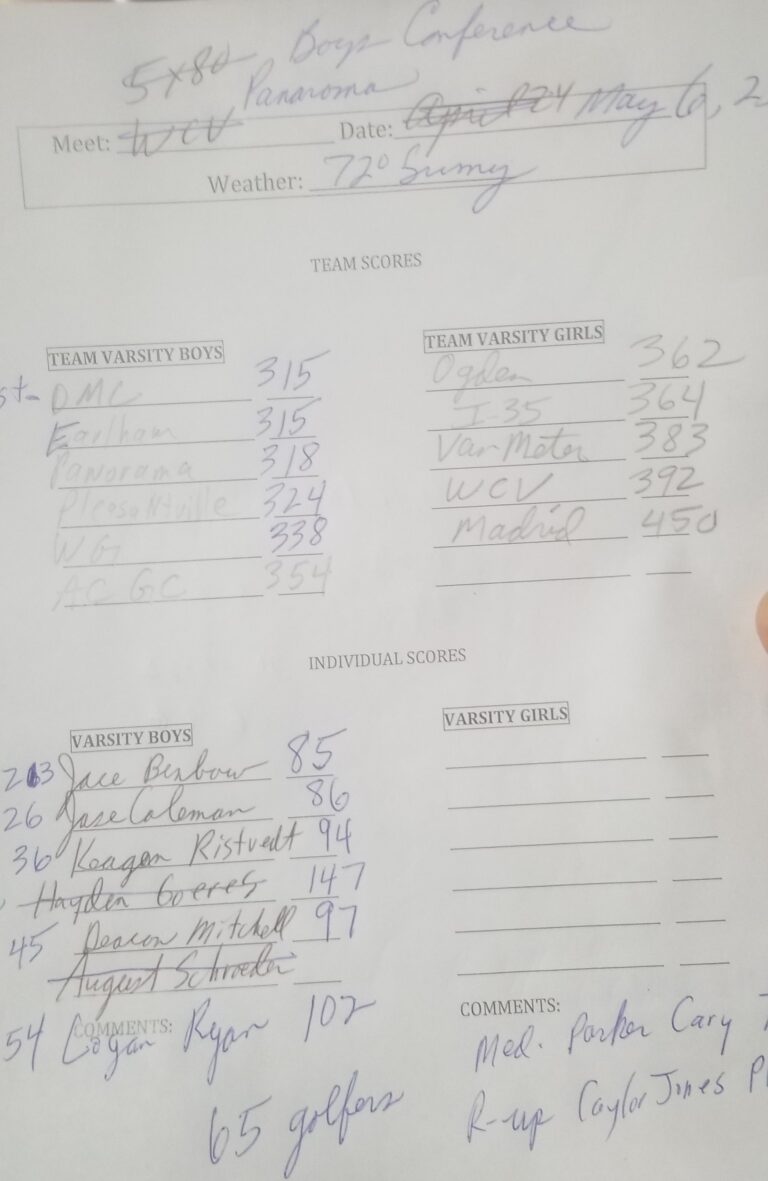 5x80 Boys Conference
Panaroma
Meet: WCV Date: April 24 May 6, 2
Weather: 72° Sunny
TEAM SCORES
TEAM VARSITY BOYS TEAM VARSITY GIRLS
st- DMC 315 Ogden 362
Earlham 315 I-35 364
Panorama 318 Van Meter 383
Pleasantville 324 WCV 392
WG 338 Madrid 450
ACGC 354
INDIVIDUAL SCORES
VARSITY BOYS VARSITY GIRLS
23 Jace Benbow 85
26 Jase Coleman 86
36 Keagen Ristvedt 94
Hayden Goeres 147
45 Deacon Mitchell 97
August Schroeder
COMMENTS: COMMENTS:
54 Logan Ryan 102 Med. Parker Cary
65 golfers R-up Caylor Jones